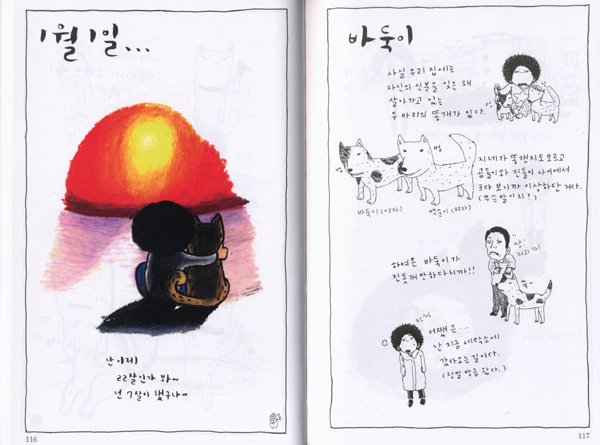 1월 1일...
난 이제
22살인가 봐~
넌 7살이 됐구나~
116
바둑이
사실 우리 집에는
자신의 신분을 잊은 채
살아가고 있는
두 마리의 똥개가 있다.
멍
멍
바둑이 (여자)
백순이 (여자)
지네가 똥갠지도 모르고
곰돌이와 진돌이 사이에서
크다 보니까 이상하단 거다.
(무슨 말이지?)
하여튼 바둑이가
진돗개만하다니까!!
쌍!
저리 가!
어쨌든...
난 지금 세탁소에
갔다오는 길이다.
(정말 방금 갔다.)
117